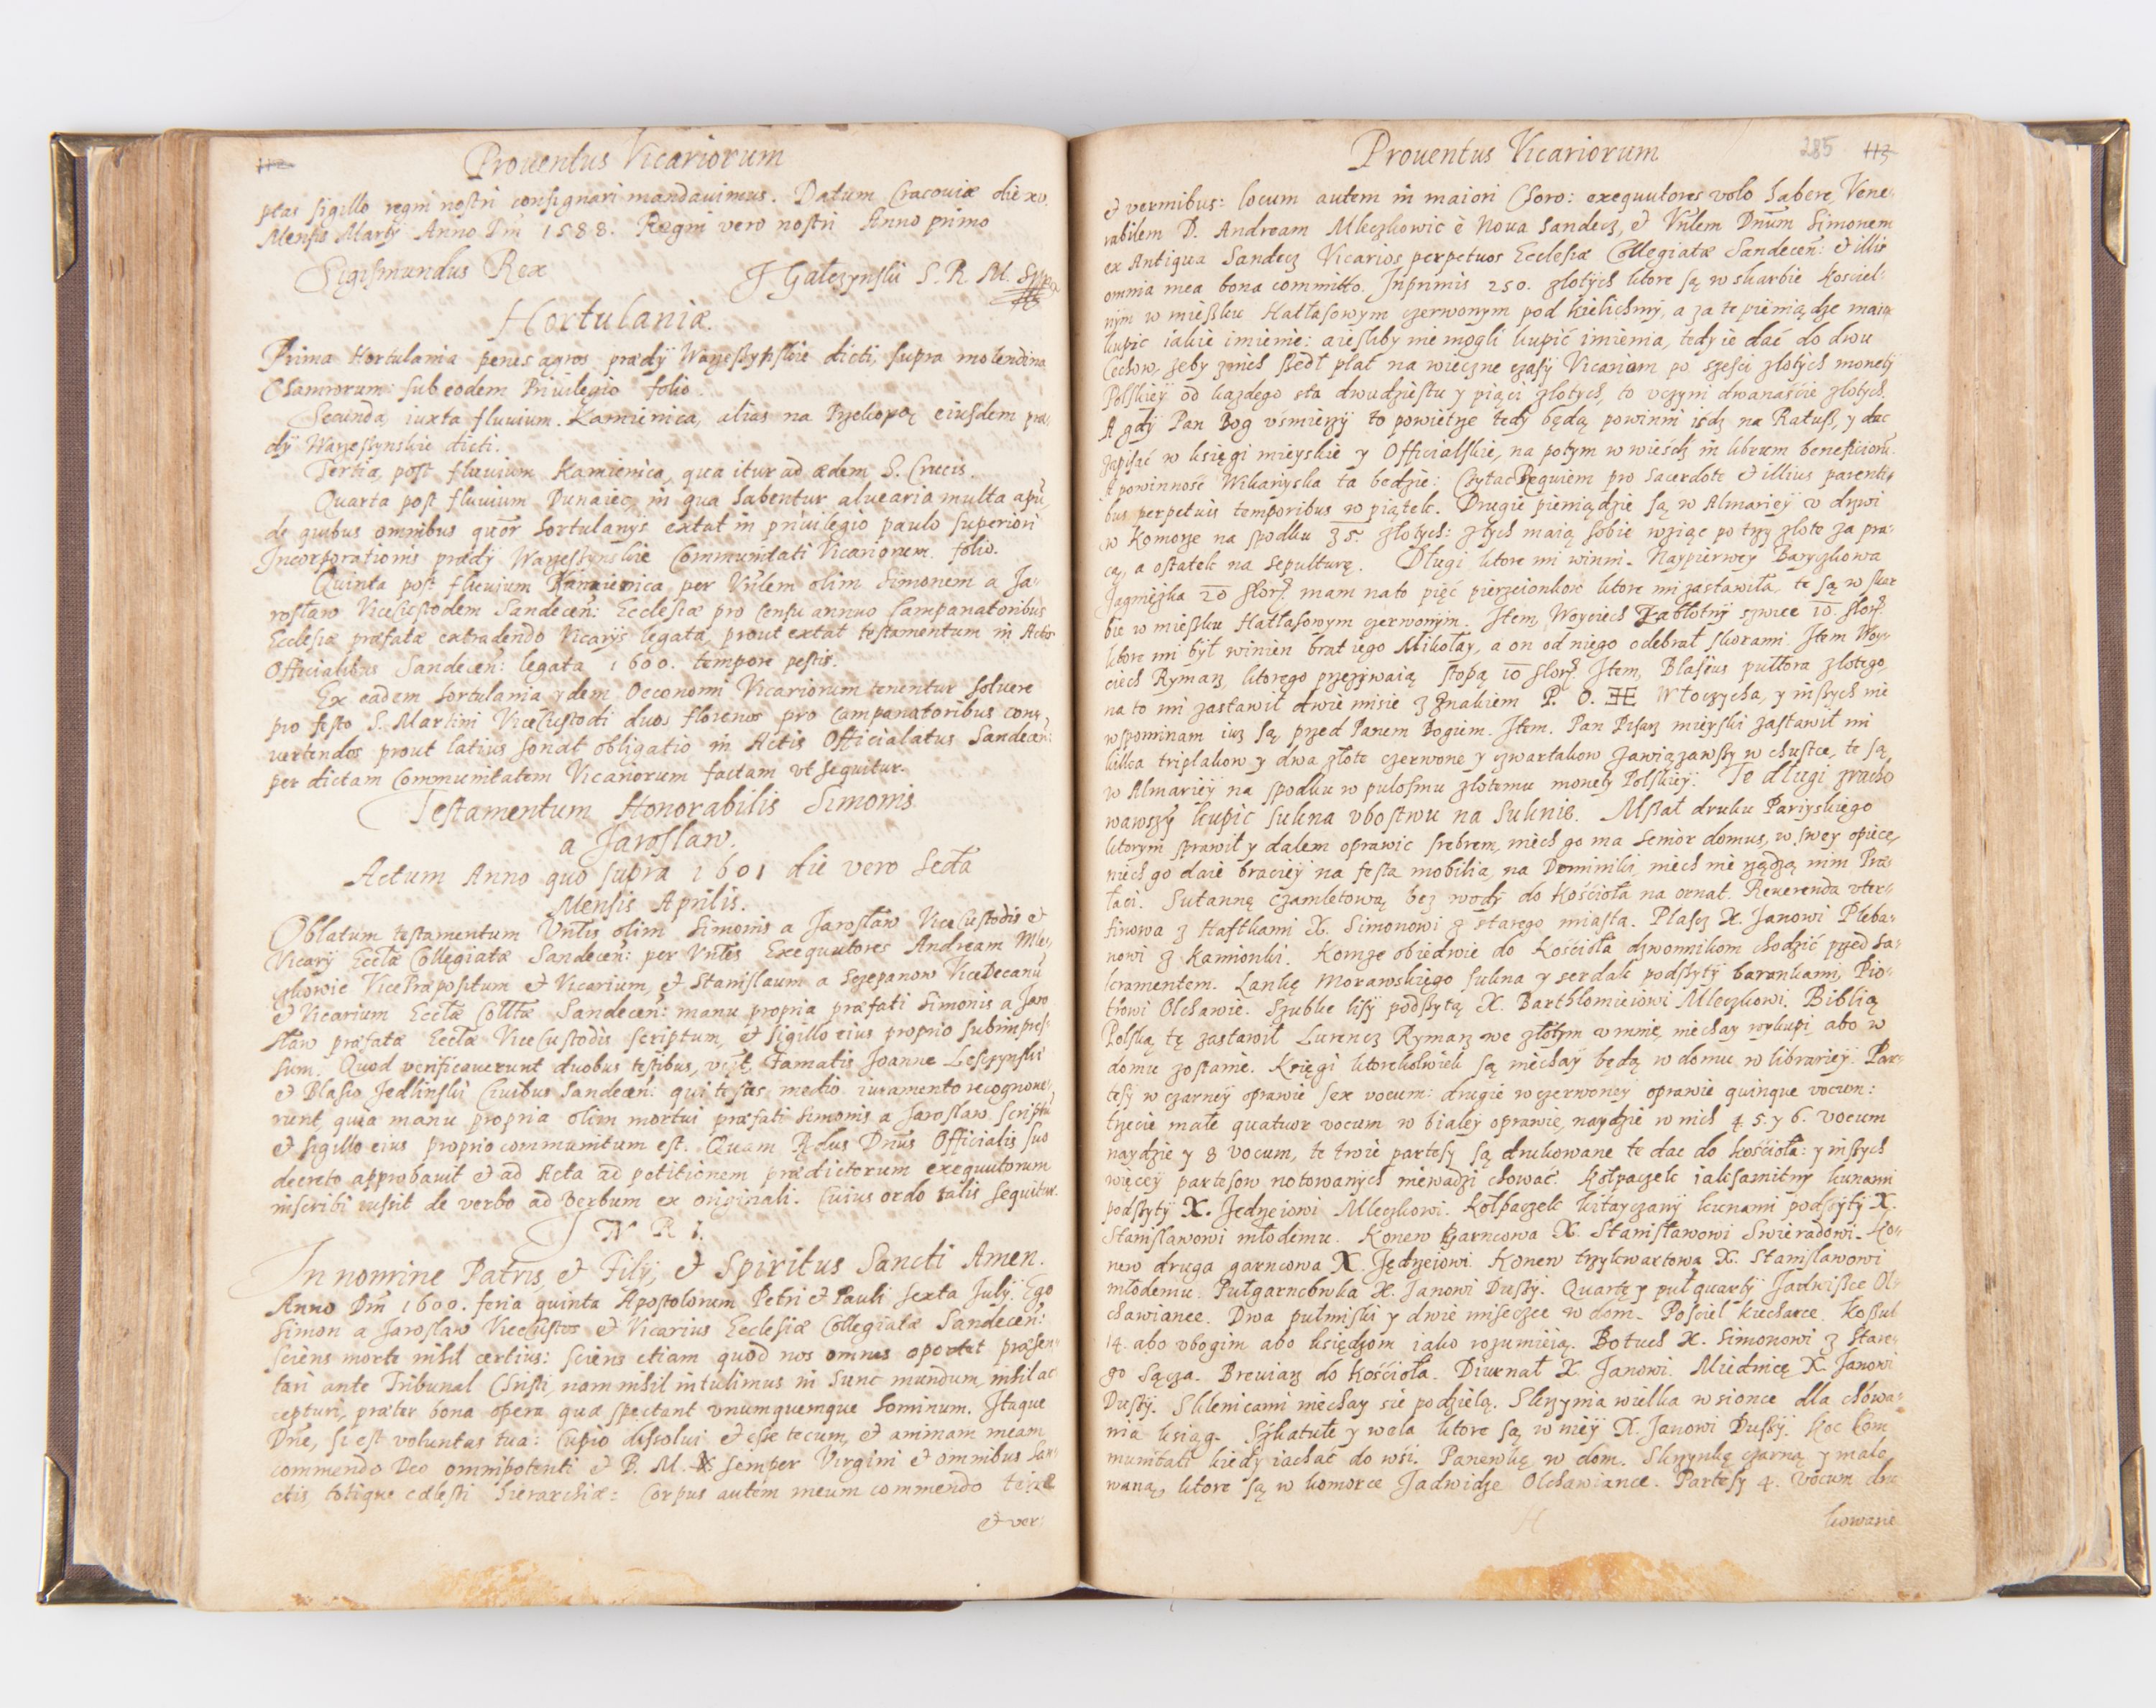 112
Prouentus Vicariorum
ptas sigillo regni nostri consignari mandauimus. Datum Cracouiæ die xv.
Mensis Martÿ Anno Dni 1588. Regni vero nostri Anno primo
Sigismundus Rex
Hortulaniæ.
Prima Hortulania penes agros prædÿ dicti, supra molendina
Chamrorum: sub eodem Priuilegio folio.
Secunda, iuxta fluuium Kamienica, alias na Przekopą eiusdem præ,
dÿ dicti.
Tertia, post fluuium Kamienica, qua itur ad ædem S. Crucis.
Quarta post fluuium Dunaiec, in qua habentur aluearia multa apū,
de quibus omnibus extat in priuilegio paulo superiori
Incorporationis prædÿ Communitati Vicariorum. folio.
Quinta post fluuium Kamienica, per Vnlem olim Simonem a Ja-
rosław ViceCustodem Sandecen: Ecclesiæ pro censu annuo Campanatoribus
Ecclesiæ præfatæ extradendo Vicarÿs legata, prout extat testamentum in Actis
Officialibus Sandecen: legata 1600. tempore pestis.
Ex eadem hortulania ydem Oeconomi Vicariorum tenentur soluere
pro festo S. Martini ViceCustodi duos florenos pro Campanatoribus con,
uertendos prout latius sonat obligatio in Actis Officialatus Sandecen:
per dictam Communitatem Vicariorum factam vt sequitur.
Testamentum Honorabilis Simonis
a Jarosław.
Actum Anno quo supra 1601 die vero Sexta
Mensis Aprilis.
Oblatum testamentum Vnlis olim Simonis a Jarosław ViceCustodis et
Vicarÿ Eccłæ Collegiatæ Sandecen: per Vnles Exequutores Andream Mle,
czkowic VicePræpositum et Vicarium, et Stanislaum a Szczepanow ViceDecanū
et Vicarium Eccłæ Colltæ Sandecen: manu propria præfati Simonis a Jaro
sław præfatæ Eccłæ ViceCustodis scriptum, et sigillo eius proprio subimpres-
sum. Quod verificauerunt duobus testibus, Famatis Joanne Leszczynski
et Blasio Jedlinski Ciuibus Sandecen: qui testes medio iuramento recognoue,
runt, quia manu propria olim mortui præfati Simonis a Jarosław scriptū
et sigillo eius proprio communitum est. Quam Dnus Officialis suo
decreto approbauit et ad Acta ad petitionem prædictorum exequutorum
inscribi iussit de verbo ad verbum ex originali. Cuius ordo talis sequitur.
J N R I.
In nomine Patris, et Filÿ, et Spiritus Sancti Amen.
Anno Dni 1600. feria quinta Apostolorum Petri et Pauli sexta Julÿ. Ego
Simon a Jarosław ViceCustos et Vicarius Ecclesiæ Collegiatæ Sandecen:
sciens morte nihil certius: sciens etiam quod nos omnes oportet præsen
tari ante Tribunal Christi, nam nihil intulimus in hunc mundum, nihil ac
cepturi, præter bona opera quæ spectant vnumquemque hominum. Itaque
Dne, si est voluntas tua: Cupio dissolui et esse tecum, et animam meam
commendo Deo omnipotenti et B. M. semper Virgini et omnibus San-
ctis, totique cælesti hierarchiæ: Corpus autem meum commendo terræ
et ver:
Prouentus Vicariorum
285 113
et vermibus: locum autem in maiori Choro: exequutores volo habere, Vene-
rabilem D. Andream Mleczkowic è Noua Sandecz, et Vnlem Dnum Simonem
ex Antiqua Sandecz Vicarios perpetuos Ecclesiæ Collegiatæ Sandecen: et illis
omnia mea bona committo. Inprimis 250. złotych ktore są w skarbie koscieł-
nÿm w mieszku Hatłasowym czerwonym pod kielichmÿ, a za te pieniądze maią
kupić iakie imienie: a iesliby nie mogli kupić imienia, tedy ie dać do dwu
Cechow, żeby z nich szedł płat na wieczne czasÿ Vicariom po szesci złotych monetÿ
Polskieÿ od każdego sta dwudziestu y piąci złotych, to vczyni dwanaście złotych.
A gdÿ Pan Bog vśmierzÿ to powietrze tedy będą powinni iśdz na Ratusz, y dac
zapisać w księgi mieyskie y Officialskie, na potym w wieśdz in librum beneficiorū.
A powinność Wikariyska ta będzie: Czytac Requiem pro Sacerdote et illius parenti,
bus perpetuis temporibus w piątek. Drugie pieniądzie są w Almarieÿ v drzwi
w Komorze na spodku 35. złotych: z tych maią sobie wziąc po trzy złote za pra-
cą, a ostatek na sepulturę. Długi ktore mi winni. Naypierwey Baryczkowa
Jagnieżka 20 flor. mam na to pięć pierzcionkow ktore mi zastawiła, te są w skar
bie w mieszku Hatłasowym czerwonym. Item, Woyciech Zabłotnÿ szwiec 10. flor.
ktore mi bÿł winien brat iego Mikołay, a on od niego odebrał skorami. Item Woy-
ciech Rymarz, ktorego przezÿwaią stopą 10 flor. Item, Blasius pułtora złotego,
na to mi zastawił dwie misie z znakiem P. O. Włoczycha, y inszych nie
wspominam iuz są przed Panem Bogiem. Item. Pan Pisarz mieyski zastawił mi
kilka triplakow y dwa złote czerwone y czwartakow zawiązawszy w chustce, te są
w Almarieÿ na spodku w pułosmu złotemu monety Polskieÿ. Te długi zracho
wawszÿ kupic sukna vbostwu na suknie. Mszał druku Pariyskiego
ktorym sprawił y dałem oprawic srebrem, niech go ma Senior domus, w swey opiece,
niech go daie bracieÿ na festa mobilia, na Dominiki, niech nie rządzą nim Præ-
łaci. Sutannę czamletową bez wody do kościoła na ornat. Reuerenda vter-
finowa z Haftkami X. Simonowi z starego miasta. Płascz X. Janowi Pleba-
nowi z Kamionki. Komże obiedwie do kościoła dzwonnikom chodzić przed Sa-
kramentem. Lankę Morawskiego sukna y serdak podszytÿ barankami, Pio-
trowi Olchawie. Szubke lisÿ podszytą X. Barthłomieiowi Mleczkowi. Biblią
Polską tę zastawił Lurencz Rymarz we złotym v mnie, niechay wykupi, abo w
domu zostanie. Księgi ktorekolwiek są niechaÿ będą w domu w librarieÿ. Par-
tesÿ w czarneÿ oprawie sex vocum: drugie w czerwoneÿ oprawie quinque vocum:
trzecie małe quatuor vocum w białey oprawie, naydzie w nich 4. 5. y 6. vocum
naydzie y 8 vocum, te troie partesy są drukowane te dac do kościoła: y inszych
więceÿ partesow notowanych niewadzi chować. Kołpaczek iaksamitny kunami
podszytÿ X. Jędrzeiowi Mleczkowi. Kołpaczek kitayczanÿ kunami podszytÿ X.
Stanisławowi młodemu. Konew garncowa X. Stanisławowi Swieradowi. Ko-
new druga garncowa X. Jędrzeiowi. Konew trzykwartowa X. Stanisławowi
młodemu. Pułgarncówka X. Janowi Duszÿ. Quartę y puł quartÿ Jadwiszce Ol-
chawiance. Dwa pułmiski y dwie miseczce w dom. Pościel kucharce. Koszul
14. abo vbogim abo księdzom iako rozumieią. Botuch X. Simonowi z Stare-
go Sącza. Breuiarz do kościoła. Diurnał X. Janowi. Miednicę X. Janowi
Duszÿ. Sklenicami niechay sie podzielą. Skrzynia wielka w sionce dla chowa-
nia ksiąg. Szkatułe y wela ktore są w nieÿ X. Janowi Duszÿ. Koc kom
munitati kiedÿ iachać do wsi. Panewkę w dom. Skrzynkę czarną y malo,
waną, ktore są w komorce Jadwidze Olchawiance. Partesy 4. vocum dru
kowane